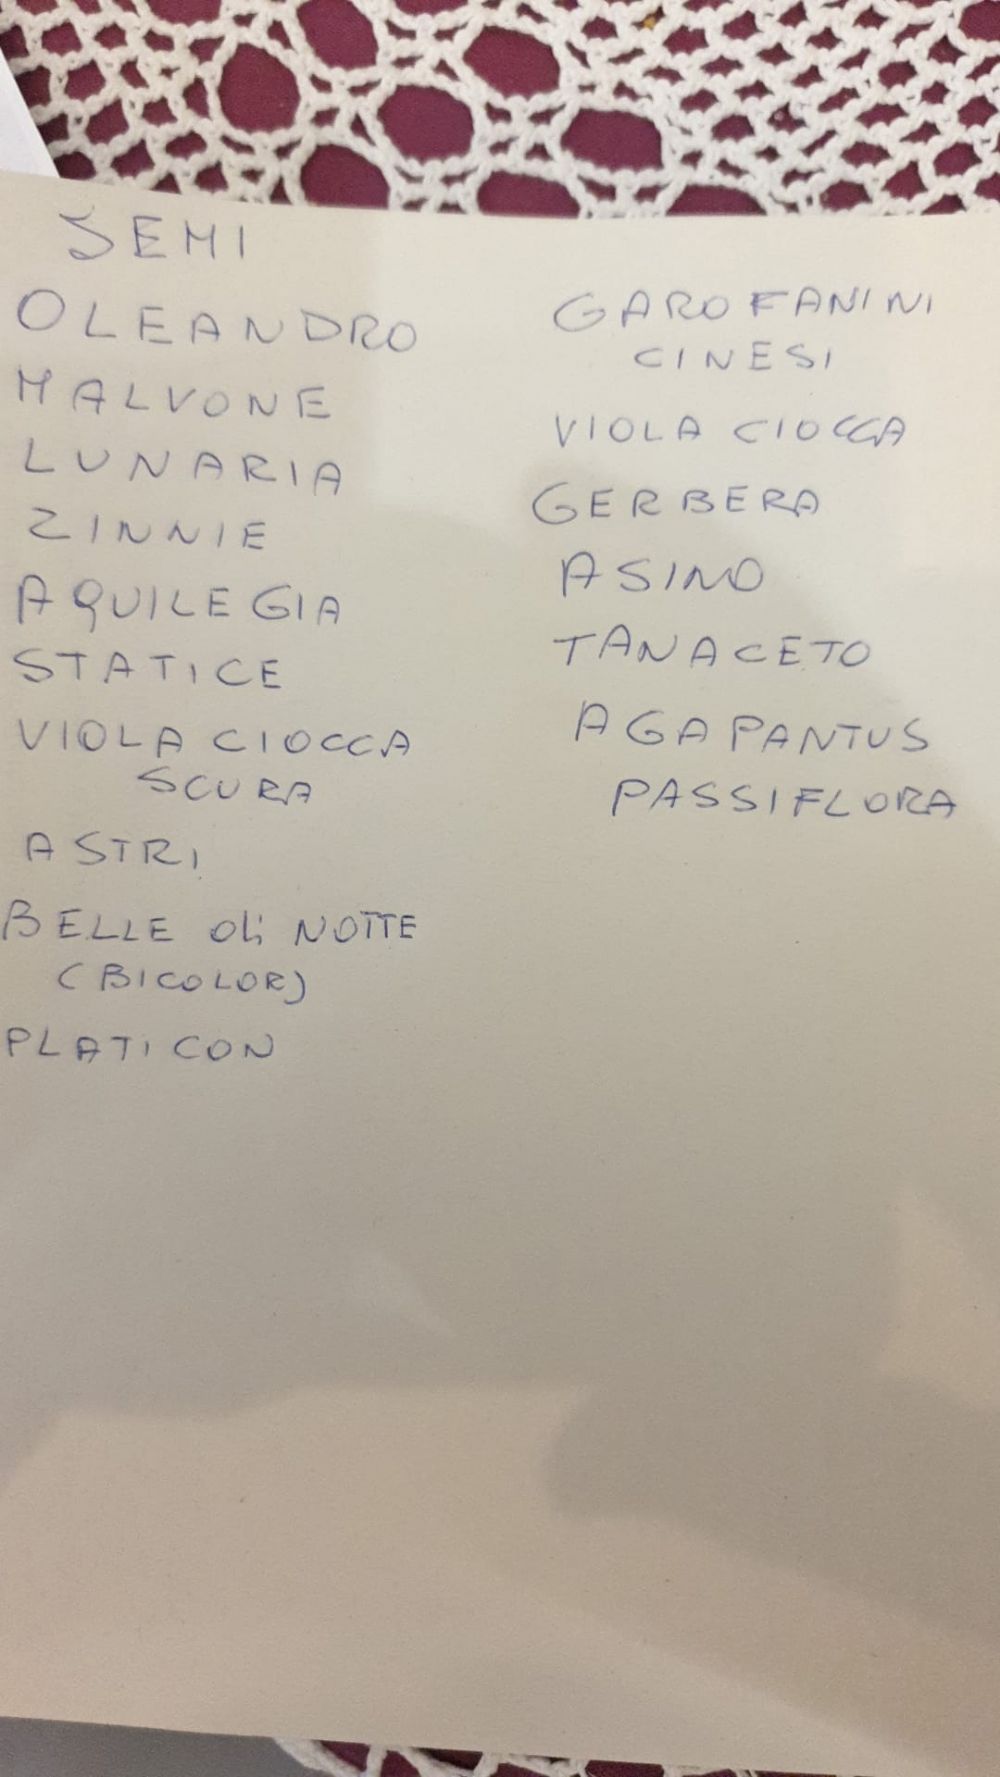 SEMI
OLEANDRO
MALVONE
LUNARIA
ZINNIE
AQUILEGIA
STATICE
VIOLA CIOCCA
SCURA
ASTRI
BELLE di NOTTE
(BICOLOR)
PLATICON
GAROFANINI
CINESI
VIOLA CIOCCA
GERBERA
ASINO
TANACETO
AGAPANTUS
PASSIFLORA